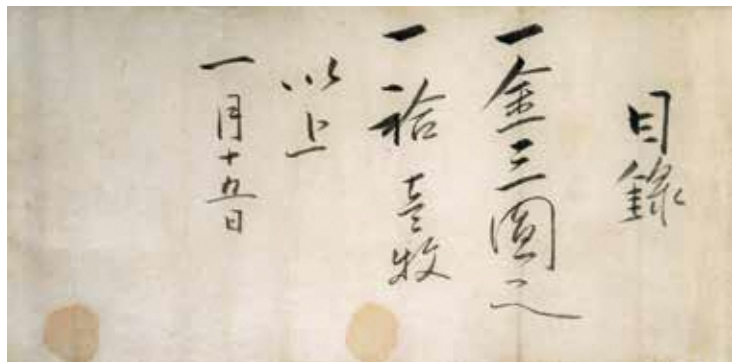 目錄
一金三圓也
一袷壹枚
以上
一月十五日